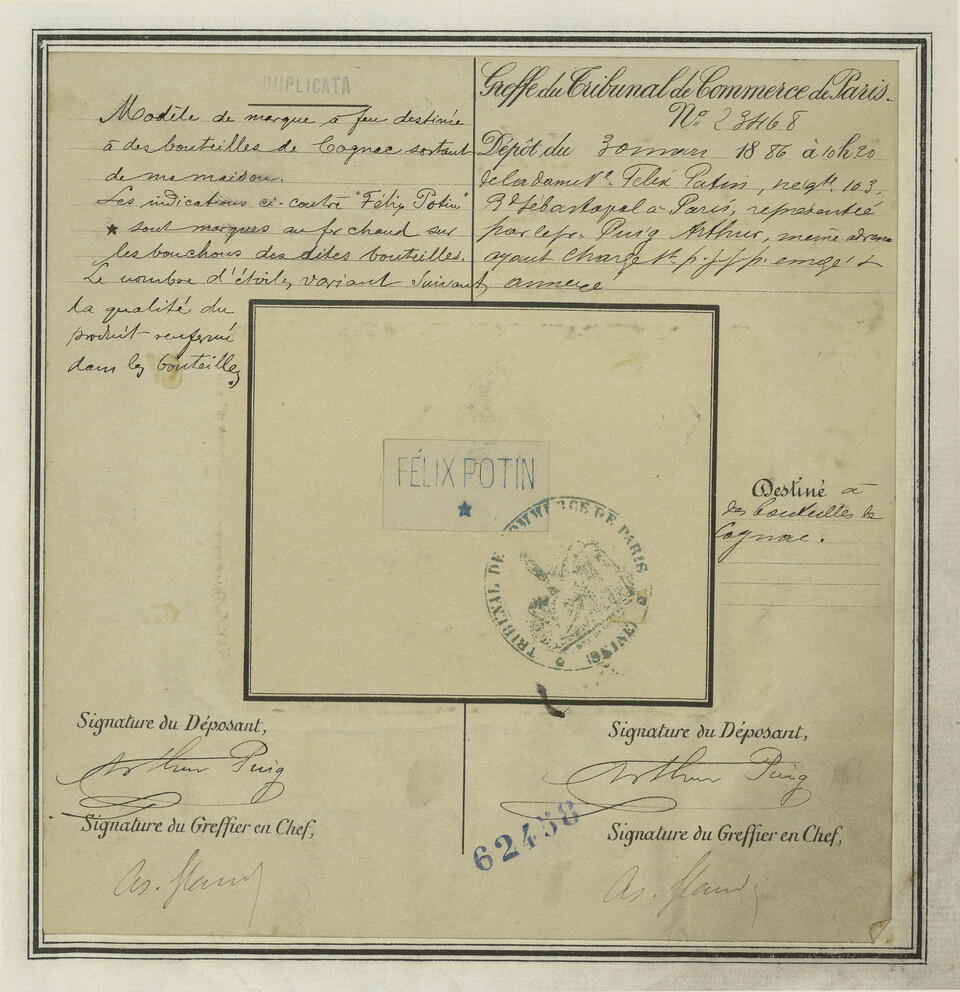 DUPLICATA
Modèle de marque à feu destinée
à des bouteilles de Cognac sortant
de ma maison.
Les indications ci-contre "Félix Potin"
★ sont marqués au fer chaud sur
les bouchons des dites bouteilles.
Le nombre d'étoiles variant suivant
la qualité du
produit renfermé
dans les bouteilles
Greffe du Tribunal de Commerce de Paris.
No 23468
Dépôt du 30 mars 1886 à 10h20
de la dame Ve. Félix Potin, negte. 103,
Bd Sébastopol à Paris, représentée
par le sr. Puig Arthur, même adresse
ayant chargé
annexé
FÉLIX POTIN
★
TRIBUNAL DE COMMERCE DE PARIS
(SEINE)
Destiné à
des bouteilles de
Cognac.
Signature du Déposant,
Arthur Puig
Signature du Greffier en Chef,
Signature du Déposant,
Arthur Puig
Signature du Greffier en Chef,
62458